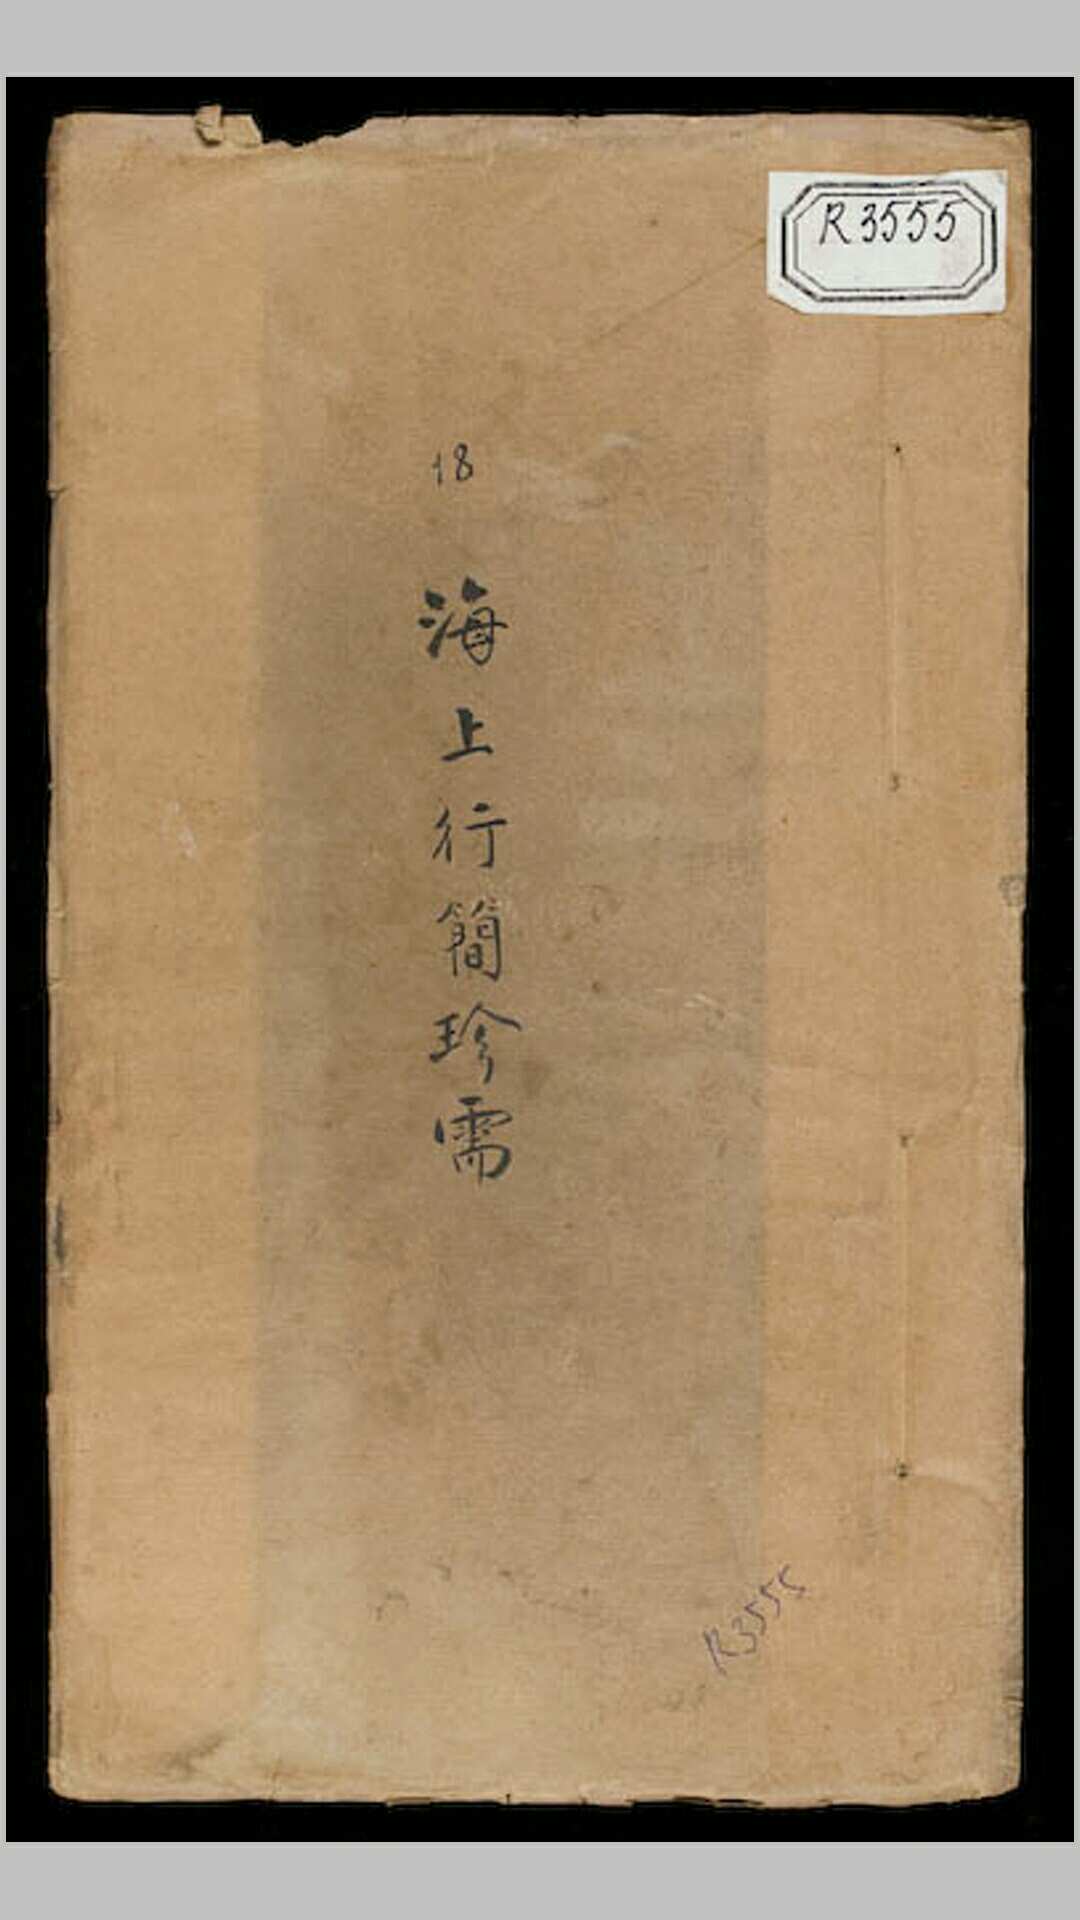 R 3555
18
海上行簡珍需
R3555